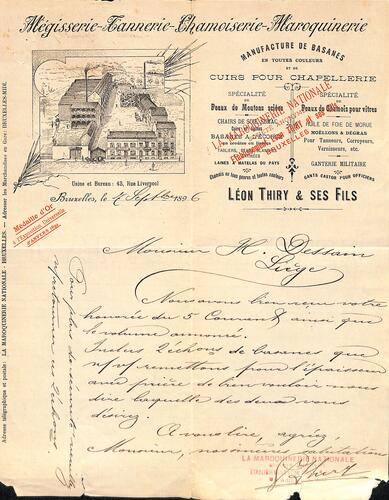 Mégisserie-Tannerie-Chamoiserie-Maroquinerie
MANUFACTURE DE BASANES
EN TOUTES COULEURS
ET DE
CUIRS POUR CHAPELLERIE
SPÉCIALITÉ
Peaux de Moutons sciées
CHAIRS DE
SPÉCIALITÉ
Peaux de Chamois pour vitres
HUILE DE FOIE DE MORUE
MOËLLONS & DÉGRAS
Pour Tanneurs, Corroyeurs,
Vernisseurs, etc.
LAINES & MATELAS DU PAYS
GANTERIE MILITAIRE
Chamois en tous genres et toutes couleurs
GANTS CASTOR POUR OFFICIERS
LA MAROQUINERIE NATIONALE
BRUXELLES
LÉON THIRY & SES FILS
Usine et Bureau : 43, Rue Liverpool
Bruxelles, le 7 Septbre 1896
Médaille d'Or
à l'Exposition Universelle
D'ANVERS 1894
Adresse télégraphique et postale : LA MAROQUINERIE NATIONALE - BRUXELLES. - Adresser les Marchandises en Gare: BRUXELLES-MIDI.
Monsieur H. Dessain
Liège
Nous avons bien reçu votre
honorée du 5 Courant ainsi que
le volume annoncé.
Inclus 2 échons de basanes que
vous remettons pour l'épaisseur
avec prière de bien vouloir nous
dire laquelle des deux vous
désirez.
A vous lire, agréez,
Monsieur, nos salutations
LA MAROQUINERIE NATIONALE
Pour plus de sécurité veuillez
retourner les 2 échons.